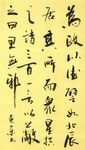 為政以德譬如北辰
居其所而眾星拱
之詩三百一言以蔽
之曰思無邪